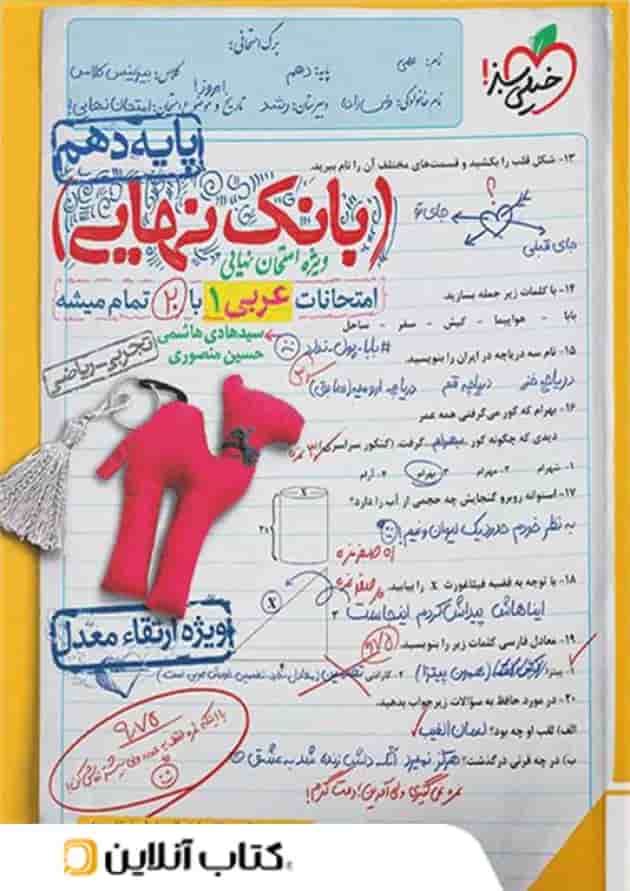 برگ امتحانی:
نام:
پایه: دهم
کلاس: بیوتیس کلاس
نام خانوادگی:
دبیرستان: رشد
تاریخ و موضوع امتحان: امروز! امتحان نهایی!
خیلی سبز!
پایه دهم
۱۳- شکل قلب را بکشید و قسمت‌های مختلف آن را نام ببرید.
؟
جای تو
جای قبلی
(بانک نهایی)
ویژه امتحان نهایی
امتحانات عربی ۱ با ۲۰ تمام میشه
سیدهادی هاشمی
حسین منصوری
تجربی-ریاضی
۱۴- با کلمات زیر جمله بسازید.
بابا - هواپیما - کیش - سفر - ساحل
#بابا_پول_ندارد
۱۵- نام سه دریاچه در ایران را بنویسید.
دریاچه خزر دریاچه قم دریاچه ارومیه (سابق)
۱۶- بهرام که گور می‌گرفتی همه عمر
دیدی که چگونه گور بهرام گرفت. (کنکور سراسری
۱- شهرام ۲- مهرام ۳- بهرام ۴- آرام
۱۷- استوانه روبرو گنجایش چه حجمی از آب را دارد؟
به نظر خودم حدود یک لیوان و نیم!
x
۱۸- با توجه به قضیه فیثاغورث x را بیابید.
ایناهاش پیداش کردم اینجاست
X
۳
ویژه ارتقاء معدل
۱۹- معادل فارسی کلمات زیر را بنویسید.
۱- پیتزا: (همون پیتزا) ۲- گارانتی:
۲۰- در مورد حافظ به سؤالات زیر جواب بدهید.
الف) لقب او چه بود؟ لسان الغیب
ب) در چه قرنی درگذشت؟ هرگز نمیرد آنکه دلش زنده شد به عشق
نمره نمی‌گیری ولی آفرین! دمت گرم!
۹/۷۵
کتاب آنلاین